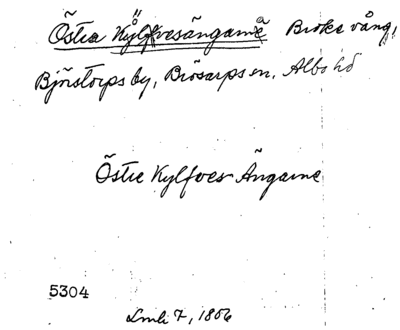 Östra Kylfvesängarne Broke vång,
Björstorps by, Brösarps sn, Albo hd
Östre Kylfves Ängarne
5304
Lmh 7, 1806